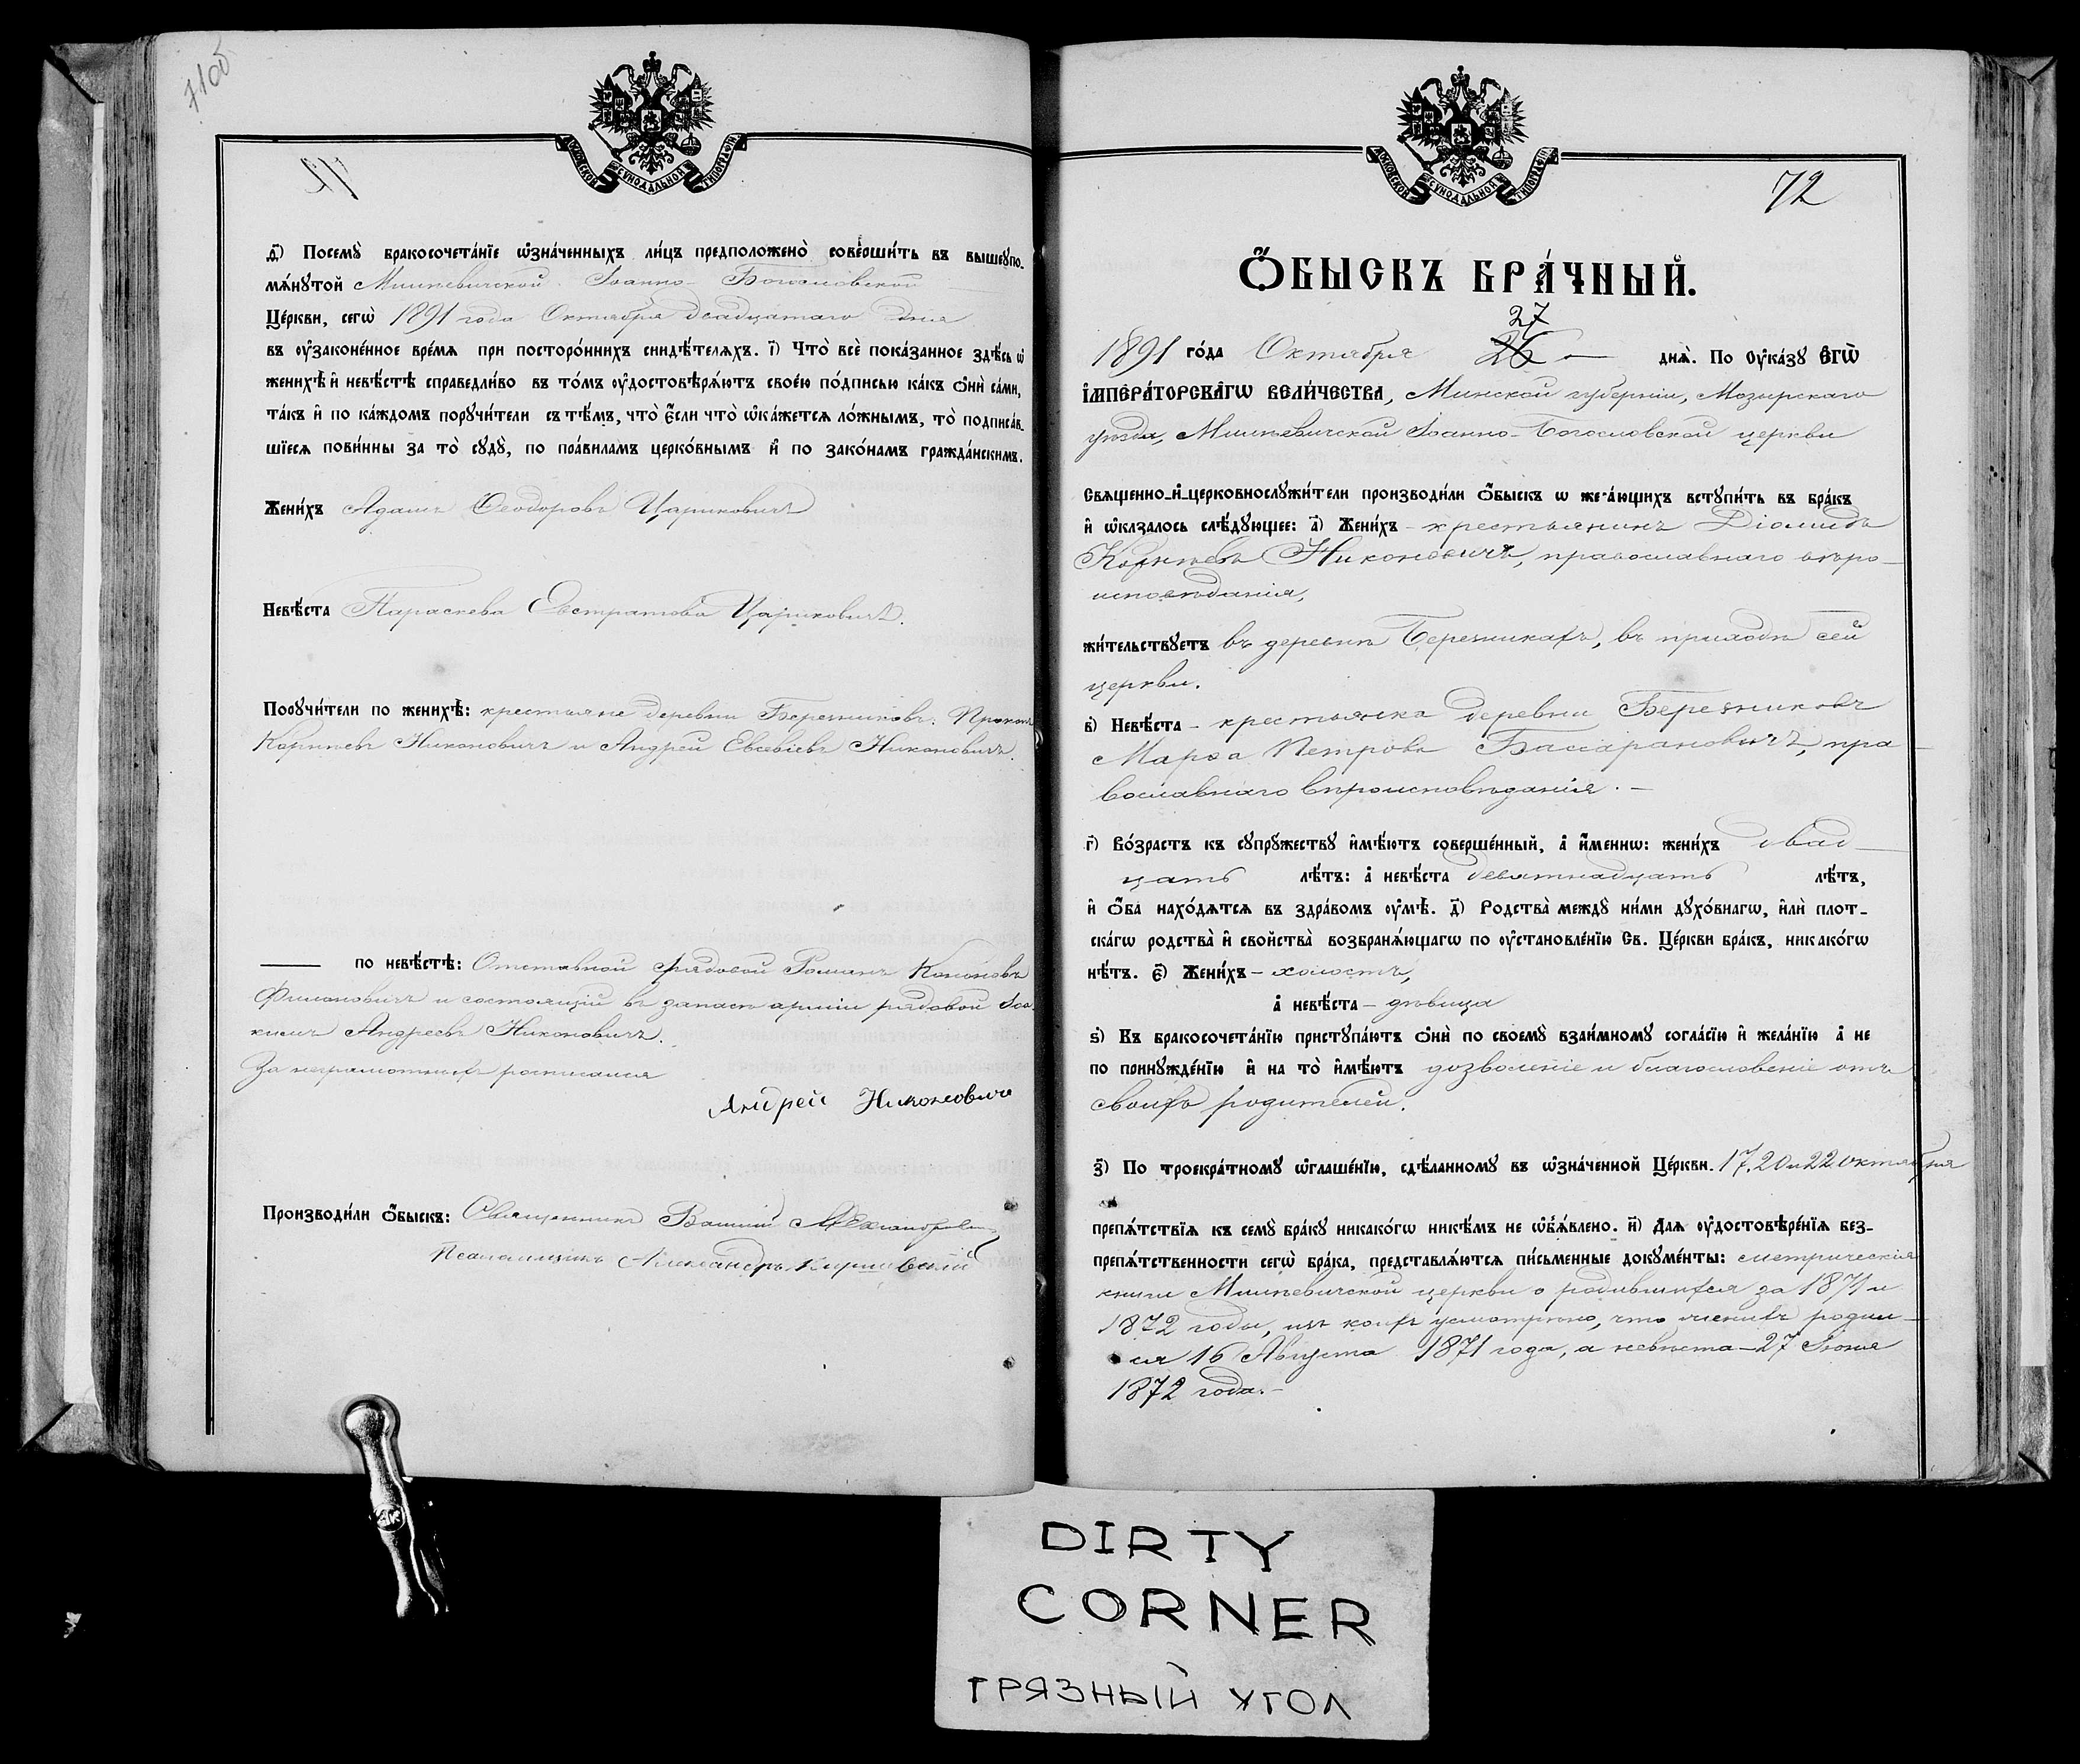 71об
МОСКОВСКОЙ СѴНОДАЛЬНОЙ ТИПОГРАФІИ
72
ѳ҃) Посемꙋ̀ бракосочета́нїе ѡ҆зна́ченныхъ ли́цъ предположено̀ соверши́ть въ вышеꙋпо-
мѧ́нꙋтой Мишневичской Іоанно- Богословской
Це́ркви, сегѡ̀ 1891 года Октября двадцатаго дня
въ оу҆зако́ненное вре́мѧ при посторо́ннихъ свидѣ́телѧхъ. і҃) Что̀ всѐ пока́занное здѣ́сь ѡ҆
женихѣ̀ и҆ невѣ́стѣ справедли́во въ то́мъ оу҆достовѣрѧ́ютъ свое́ю по́дписью ка́къ ѻ҆нѝ са́ми,
та́къ и҆ по ка́ждомъ порꙋчи́тели съ тѣ́мъ, что̀ є҆́сли что̀ ѡ҆ка́жетсѧ ло́жнымъ, то̀ подписа́в-
шїесѧ пови́нны за то̀ сꙋдꙋ̀, по пра́виламъ церко́внымъ и҆ по зако́намъ гражда́нскимъ.
Жени́хъ Адамъ Ѳеодоровъ Цариковичъ
Невѣ́ста Параскева Евстратова Цариковичъ.
Порꙋчи́тели по женихѣ̀: крестьяне деревни Березниковъ: Прокопъ
Корнѣевъ Никоновичъ и Андрей Евсевіевъ Никоновичъ.
по невѣ́стѣ: Отставной рядовой Романъ Кононовъ
Филоновичъ и состоящій въ запасѣ арміи рядовой Іоа-
кимъ Андреевъ Никоновичъ.
За неграмотныхъ росписался
Андрей Никоновичъ
Производи́ли ѻ҆́быскъ: Священникъ
Псаломщикъ Александръ
МОСКОВСКОЙ СѴНОДАЛЬНОЙ ТИПОГРАФІИ
72
Ѻ҆́БЫСКЪ БРА́ЧНЫЙ.
27
1891 го́да Октября 26 — днѧ̀. По Оу҆ка́зꙋ Є҆ГѠ̀
І҆МПЕРА́ТОРСКАГѠ ВЕЛИ́ЧЕСТВА, Минской губерніи, Мозырскаго
уѣзда, Мишневичской Іоанно-Богословской церкви
Свѧще́нно-и҆-церковнослꙋжи́тели производи́ли ѻ҆́быскъ ѡ жела́ющихъ встꙋпи́ть въ бра́къ
и҆ ѡ҆каза́лось слѣ́дꙋющее: а҃) Жени́хъ - крестьянинъ Діомидъ
Корнѣевъ Никоновичъ, православнаго вѣро-
исповѣданія,
жи́тельствꙋетъ въ деревнѣ Березникахъ, въ приходѣ сей
церкви.
в҃) Невѣ́ста - крестьянка деревни Березниковъ
Марѳа Петрова Бассарановичъ, пра-
вославнаго вѣроисповѣданія. -
г҃) Во́зрастъ къ сꙋпрꙋ́жествꙋ и҆мѣ́ютъ соверше́нный, а҆ и҆́меннѡ: жени́хъ двад-
цать лѣ́тъ: а҆ невѣ́ста девятнадцать лѣ́тъ,
и҆ ѻ҆́ба нахо́дѧтсѧ въ здра́вомъ оу҆мѣ̀. д҃) Родства̀ междꙋ̀ ни́ми дꙋхо́внагѡ, и҆лѝ плот-
ска́гѡ родства̀ и҆ свойства̀ возбранѧ́ющагѡ по оу҆становле́нїю Св. Це́ркви бра́къ, никако́гѡ
нѣ́тъ. є҃) Жени́хъ - холостъ,
а҆ невѣ́ста - дѣвица
ѕ҃) Къ бракосочета́нїю пристꙋпа́ютъ ѻ҆нѝ по своемꙋ̀ взаи́мномꙋ согла́сїю и҆ жела́нїю а҆ не
по принꙋжде́нїю и҆ на то̀ и҆мѣ́ютъ дозволеніе и благословеніе отъ
своихъ родителей.
з҃) По троекра́тномꙋ ѡ҆глаше́нїю, сдѣ́ланномꙋ въ ѡ҆зна́ченной Це́ркви. 17, 20 и 22 октября
препѧ́тствїѧ къ семꙋ̀ бра́кꙋ никако́гѡ никѣ́мъ не ѡ҆б̾ѧ́влено. и҃) Длѧ оу҆достовѣре́нїѧ без-
препѧ́тственности сегѡ̀ бра́ка, представлѧ́ютсѧ пи́сьменные докꙋме́нты: метрическія
книги Мишневичской церкви о родившихся за 1871 и
1872 годы, изъ коихъ усмотрено, что женихъ родил-
ся 16 Августа 1871 года, а невѣста - 27 Іюня
1872 года. -
DIRTY
CORNER
ГРЯЗНЫЙ УГОЛ